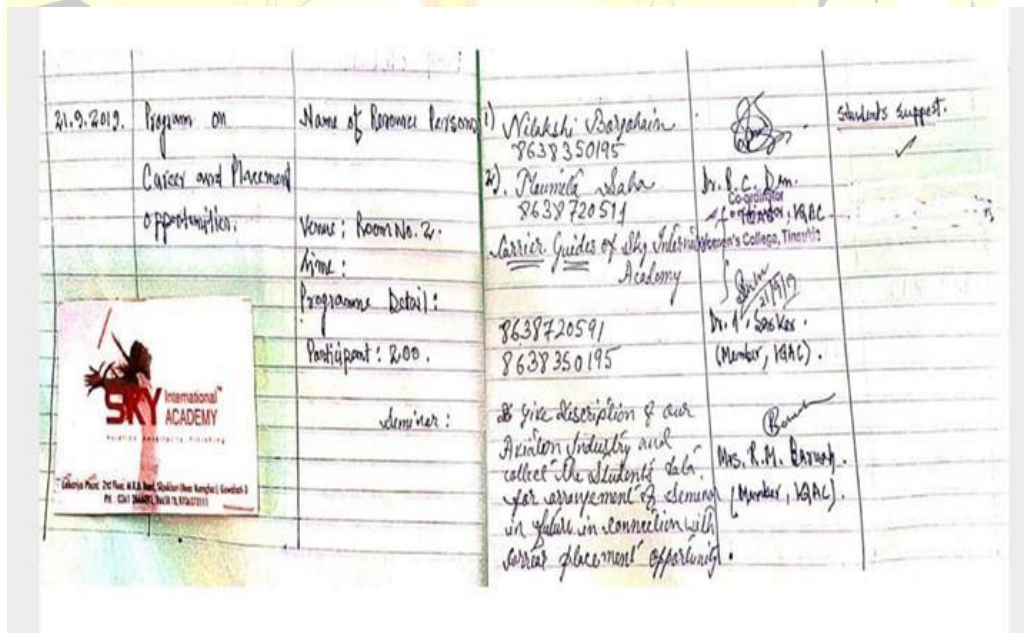 21.9.2019.
Program on
Career and Placement
opportunities.
SKY International
ACADEMY
Name of Resource Persons
Venue : Room No. 2.
Time :
Programme Detail :
Participant : 200.
Seminar :
1) Nilakshi Borgohain
8638350195
2). Moumita Saha
8638720591
Carrier Guides of Sky Internat
Academy
8638720591
8638350195
give discription of our
Aviation Industry and
collect the Students data
for arrangement of Seminar
in future in connection with
carrear placement opportunity.
Dr. R. C. Den.
Co-ordinator
Co-ordinator, IQAC
Women's College, Tinsukia
21/9/19
Dr. Sarkar.
(Member, IQAC).
Mrs. R.M. Baruah.
(Member, IQAC).
Students suppost.